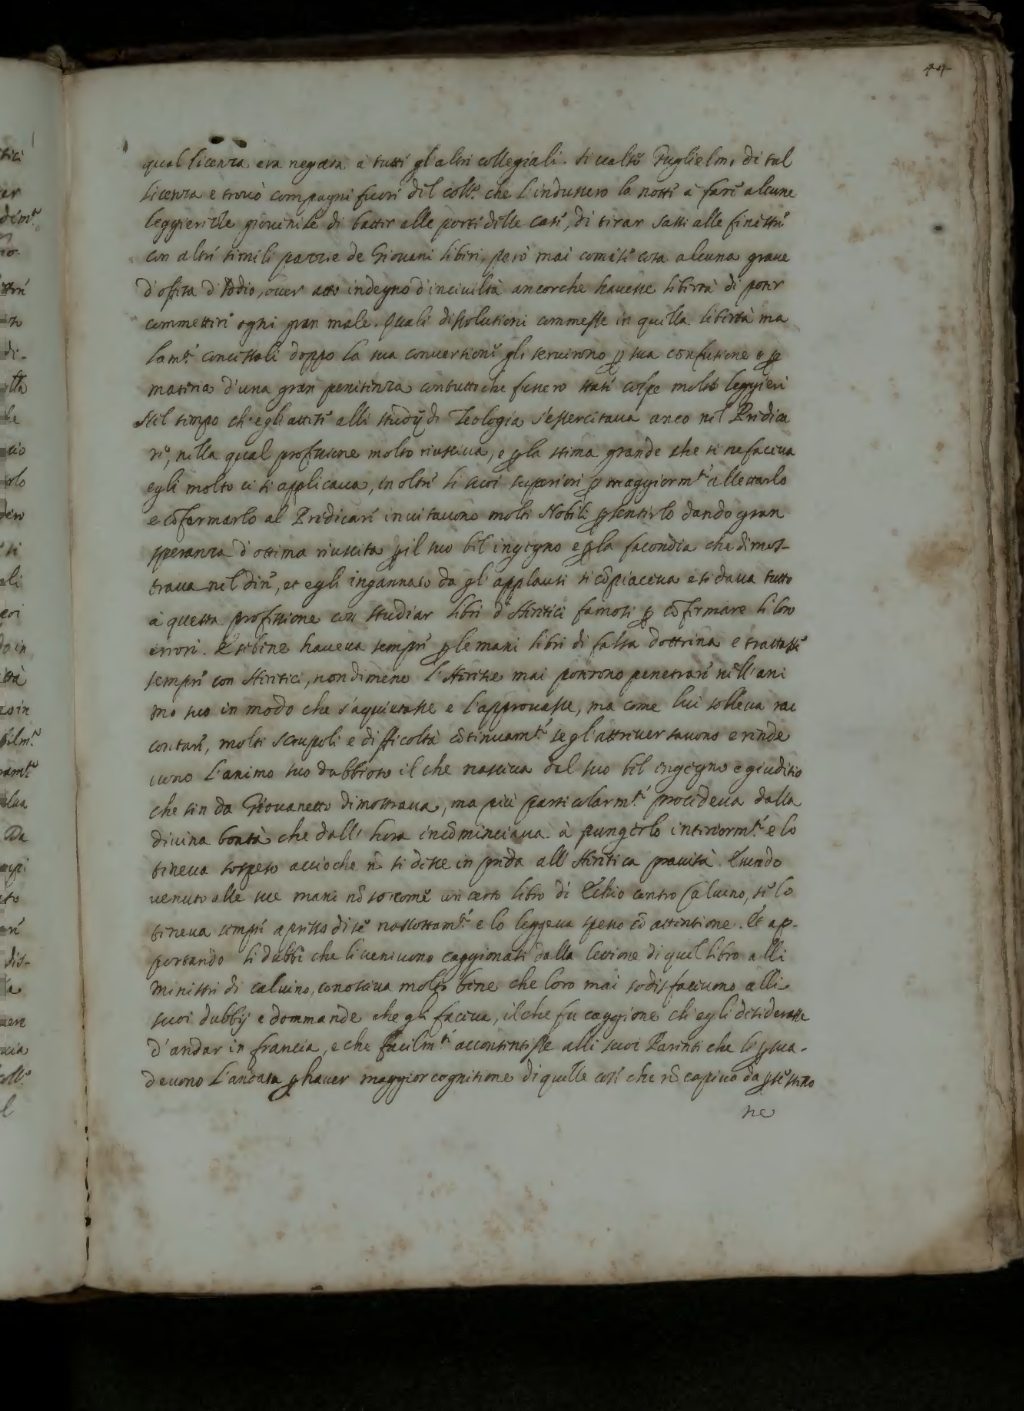 44
qual licenza era negata a tutti gl'altri collegiali. Si valse Guglielmo di tal
licenza e trovò compagni fuori del coll.º che l'indussero la notte à fare alcune
leggierezze giovenile di batter alle porte delle case, di tirar sassi alle finestre
con altre simili pazzie de Giovani liberi, però mai comise cosa alcuna grave
d'offesa d'Iddio, over atto indegno d'inciviltà ancorche havesse libertà di poter
commettere ogni gran male. Quali dissolutioni commesse in quella libertà ma
lam.te concessali doppo la sua conversione gli servirono p sua confusione e p
materia d'una gran penitenza contuttoche fussero state colpe molto leggieri
Nel tempo ch'egli attese alli studij di Teologia s'essercitava anco nel Predica
re, nella qual professione molto riusciva, e p la stima grande che si ne faceva
egli molto vi si applicava, in oltre li suoi superiori p maggiorm.te allettarlo
e cõfermarlo al Predicare invitavono molti Nobili p sentirlo dando gran
speranza d'ottima riuscita p il suo bel ingegno e p la facondia che dimos-
trava nel dire, et egli ingannato da gl'applausi si cõpiaceva e si dava tutto
à questa professione con studiar libri d'Heretici famosi p cõfirmare li loro
errori. E sebene haveva sempre p le mani libri di falsa dottrina e trattasse
sempre con Heretici, nondimeno l'Heresie mai poterono penetrare nell'ani
mo suo in modo che s'aquietasse e l'approvasse, ma come lui soleva rac
contare, molti scrupoli e difficoltà cõtinuam.te se gl'attraversavono e rende
vono l'animo suo dubbioso il che nasceva dal suo bel ingegno e giuditio
che sin da Giovanetto dimostrava, ma più particolarm.te procedeva dalla
divina bontà che dall'hora incõminciava à pungerlo interiorm.te e lo
teneva sospeso accioche nõ si desse in preda all'Heretica pravità. Essendo
venuto alle sue mani nõ so come un certo libro di contro Calvino, se lo
teneva sempre apresso di se nascostam.te e lo leggeva spesso cõ attentione. Et ap-
portando li dubbi che li venivono caggionati dalla lettione di quel libro alli
Ministri di Calvino, conosceva molto bene che loro mai sodisfacivono alli
suoi dubbij e dommande che gli faceva, il che fu caggione ch'egli desiderasse
d'andar in francia, e che facilm.te accontentasse alli suoi Parenti che le psua-
devono l'andata p haver maggior cognitione di quelle cose che nõ capiva da p se stesso
ne